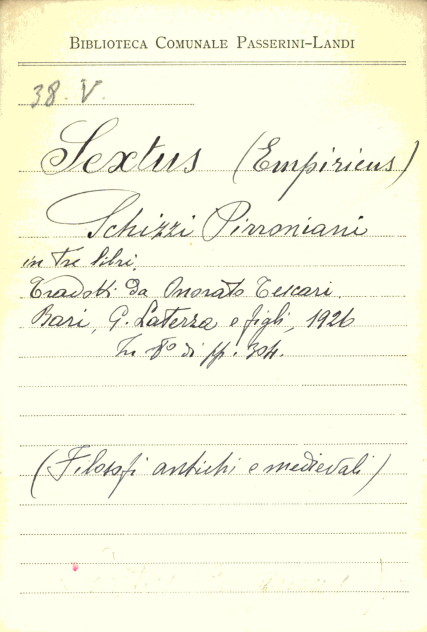 BIBLIOTECA COMUNALE PASSERINI-LANDI
38. V.
Sextus (Empiricus)
Schizzi Pirroniani
in tre libri.
Tradotti da Onorato Tescari.
Bari, G. Laterza e figli, 1926
In 8° di pp. 304.
(Filosofi antichi e medievali)